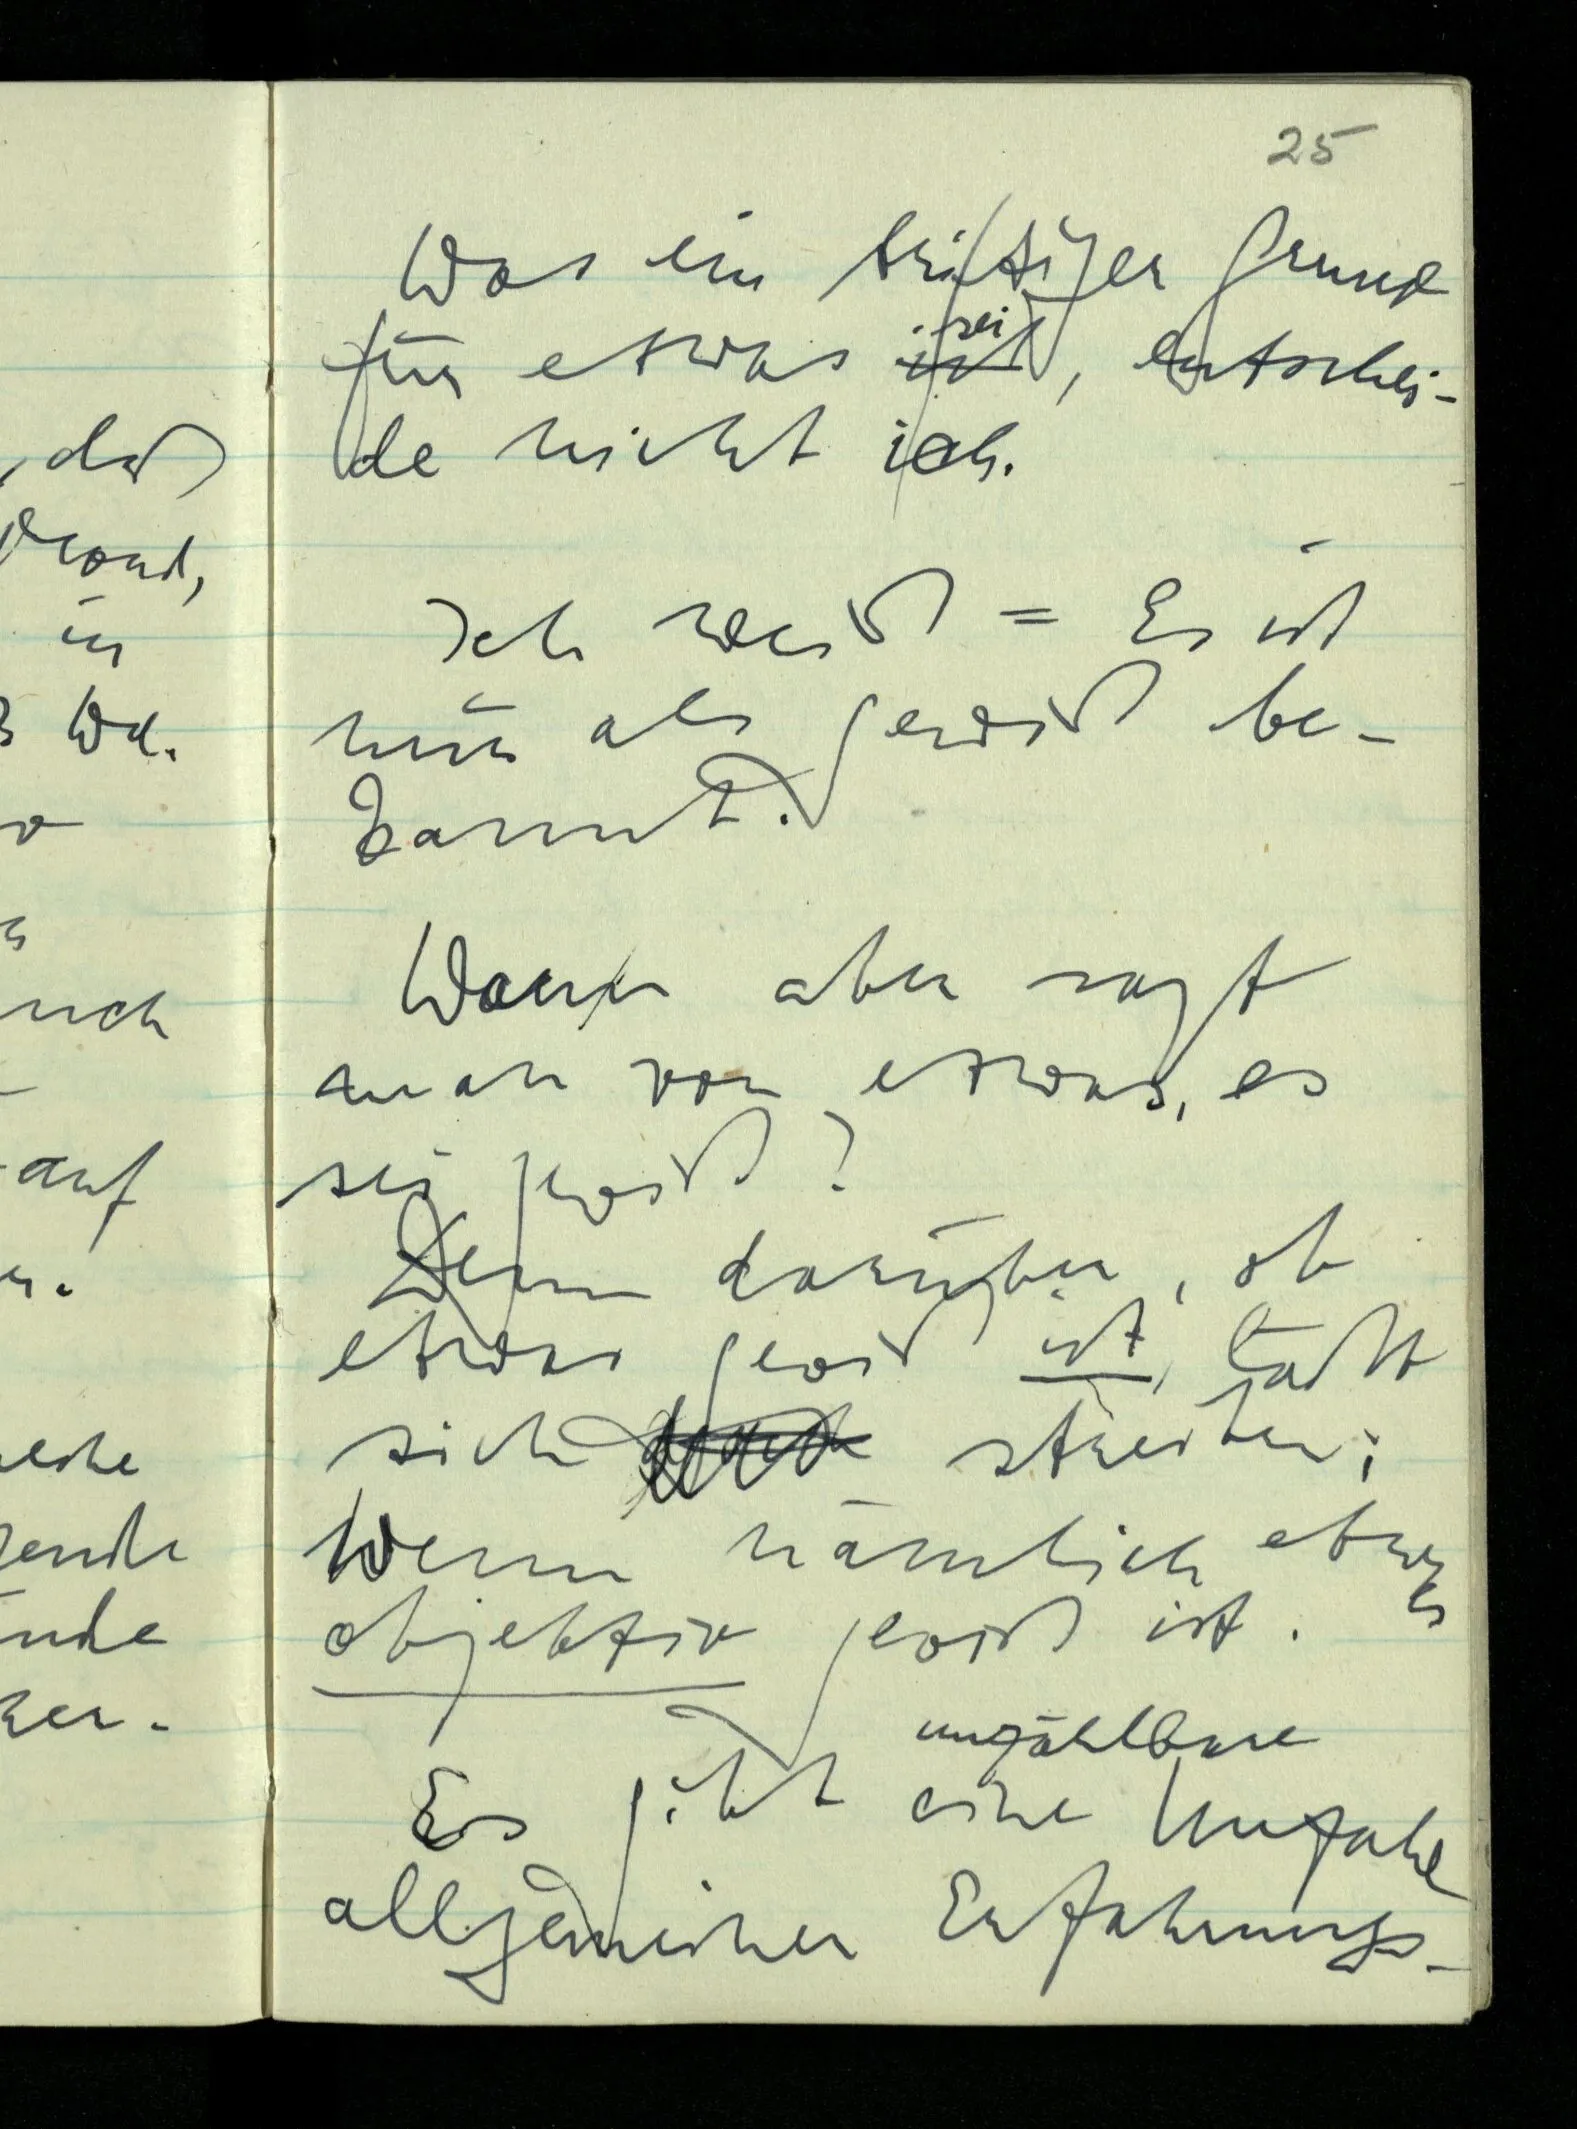 25
Was ein triftiger Grund
für etwas ist sei, entschei-
de nicht ich.
Ich weiß = Es ist
mir als gewiß be-
kannt.
Wann aber sagt
man von etwas, es
sei gewiß?
Denn darüber, ob
etwas gewiß ist, läßt
sich streiten;
Wenn nämlich etwas
objektiv gewiß ist.
unzählbare
Es gibt eine Unzahl
allgemeiner Erfahrungs-
, daß
in
auf